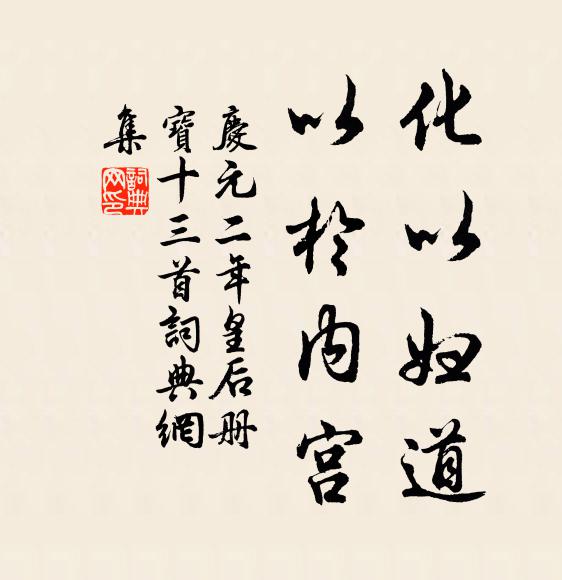 化以妇道
以於内宫
慶元二年皇后册
寶十三首詞典網
集
詞典網印